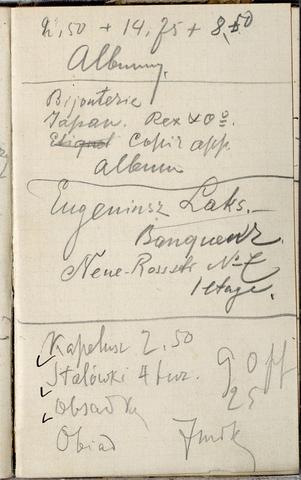 2,50 + 14,75 + 8,50
Albumy.
Bijouterie
Japan. Rex & Co
Copir app.
album
Eugeniusz Laks.
Banquier
Neue-Rossstr N-7
1 etage.
Kapelusz 2.50
Stalówki 4 tuz.
Obsadki
25
Obiad